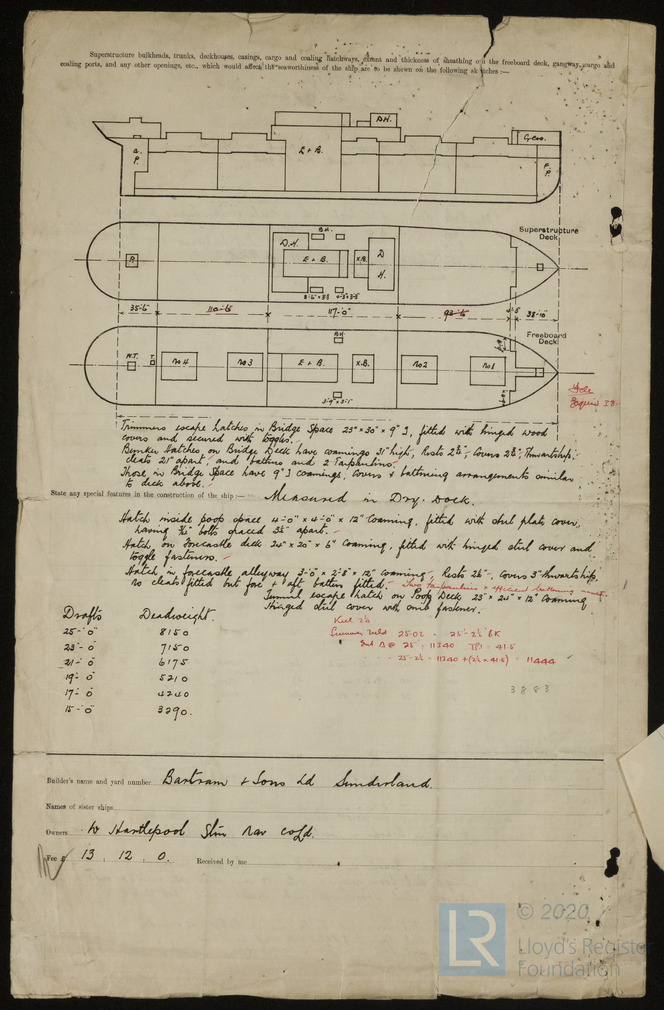 Superstructure bulkheads, trunks, deckhouses, casings, cargo and coaling hatchways, extent and thickness of sheathing on the freeboard deck, gangway, cargo and
coaling ports, and any other openings, etc., which would affect the seaworthiness of the ship are to be shown on the following sketches :—
D.H.
Crew.
A.P.
E + B.
F.P.
Superstructure
Deck
B.H.
D.H.
E + B.
X.B.
D H.
35'-6"
110'-6"
117'-0"
93'-6"
38'-10"
Freeboard
Deck
B.H.
W.T.
T.
No 4
No 3
E + B.
X.B.
No 2
No 1
Trimmers escape hatches in Bridge Space 23" x 30" x 9" I, fitted with hinged wood
covers and secured with toggles.
Bunker Hatches on Bridge Deck have coamings 31" high, Rests 2½", Covers 2½", Thwartship,
cleats 21" apart, and battens and 2 Tarpaulins.
Those in Bridge Space have 9" I coamings, Covers & battening arrangements similar
to deck above.
State any special features in the construction of the ship:— Measured in Dry. Dock.
Hatch inside poop space 4'-0" x 4'-0" x 12" Coaming, fitted with steel plate cover,
having ¾" bolts spaced 3½" apart.
Hatch on Forecastle deck 24" x 20" x 6" Coaming, fitted with hinged steel cover and
toggle fasteners.
Hatch in forecastle alleyway 3'-0" x 2'-8" x 12" coaming, Rests 2½", Covers 3" thwartship,
no cleats fitted but fore & aft batten fitted.
Tunnel escape hatch on Poop Deck, 23" x 24" x 12" Coaming
Hinged steel cover with one fastener.
Drafts Deadweight.
25'-0" 8150
23'-0" 7150
21'-0" 6175
19'-0" 5210
17'-0" 4240
15'-0" 3290.
Keel 2½
25.02 = 25'-2½" BK
@ 25' = 11340 TPI = 41.5
25'-2½ = 11340 + (2½ x 41.5) = 11444
3883
Builder's name and yard number Bartram & Sons Ld Sunderland.
Names of sister ships
Owners W Hartlepool Stm Nav Co Ld.
Fee £ 13 . 12 . 0. Received by me
© 2020
LR
Lloyd's Register
Foundation